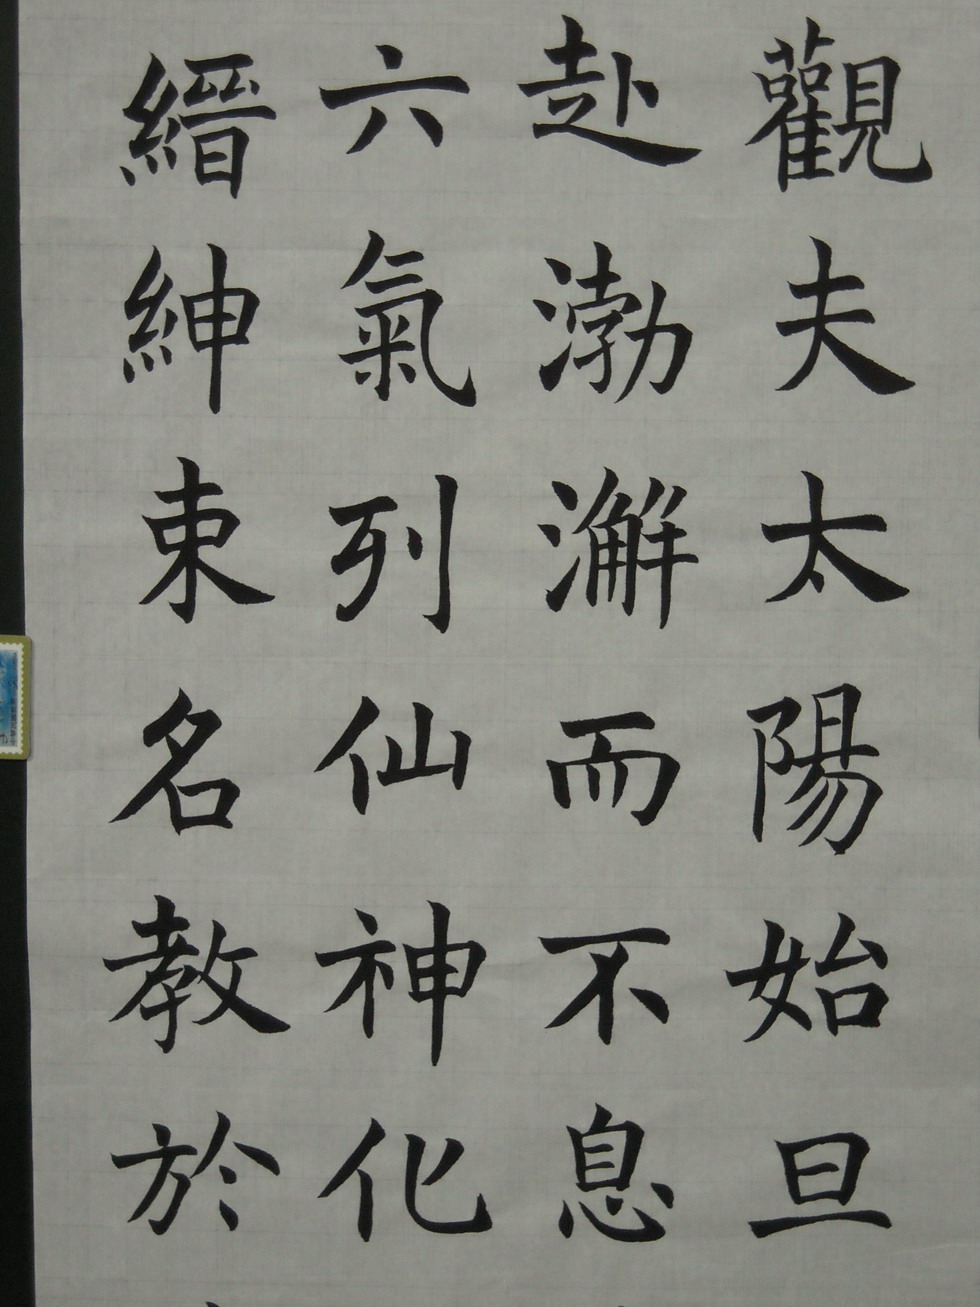 觀夫太陽始旦
赴渤澥而不息
六氣列仙神化
縉紳束名教於